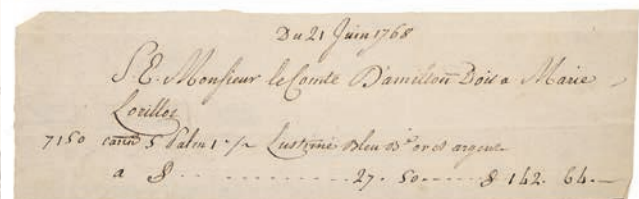 Du 21 Juin 1768
S. E. Monsieur le Comte D'amilton Dois a Marie
Lorillos
7150 cann 5 Palm 1 Lustriné Bleu Bd or et argent
a 8 27. 50 8 142. 64.